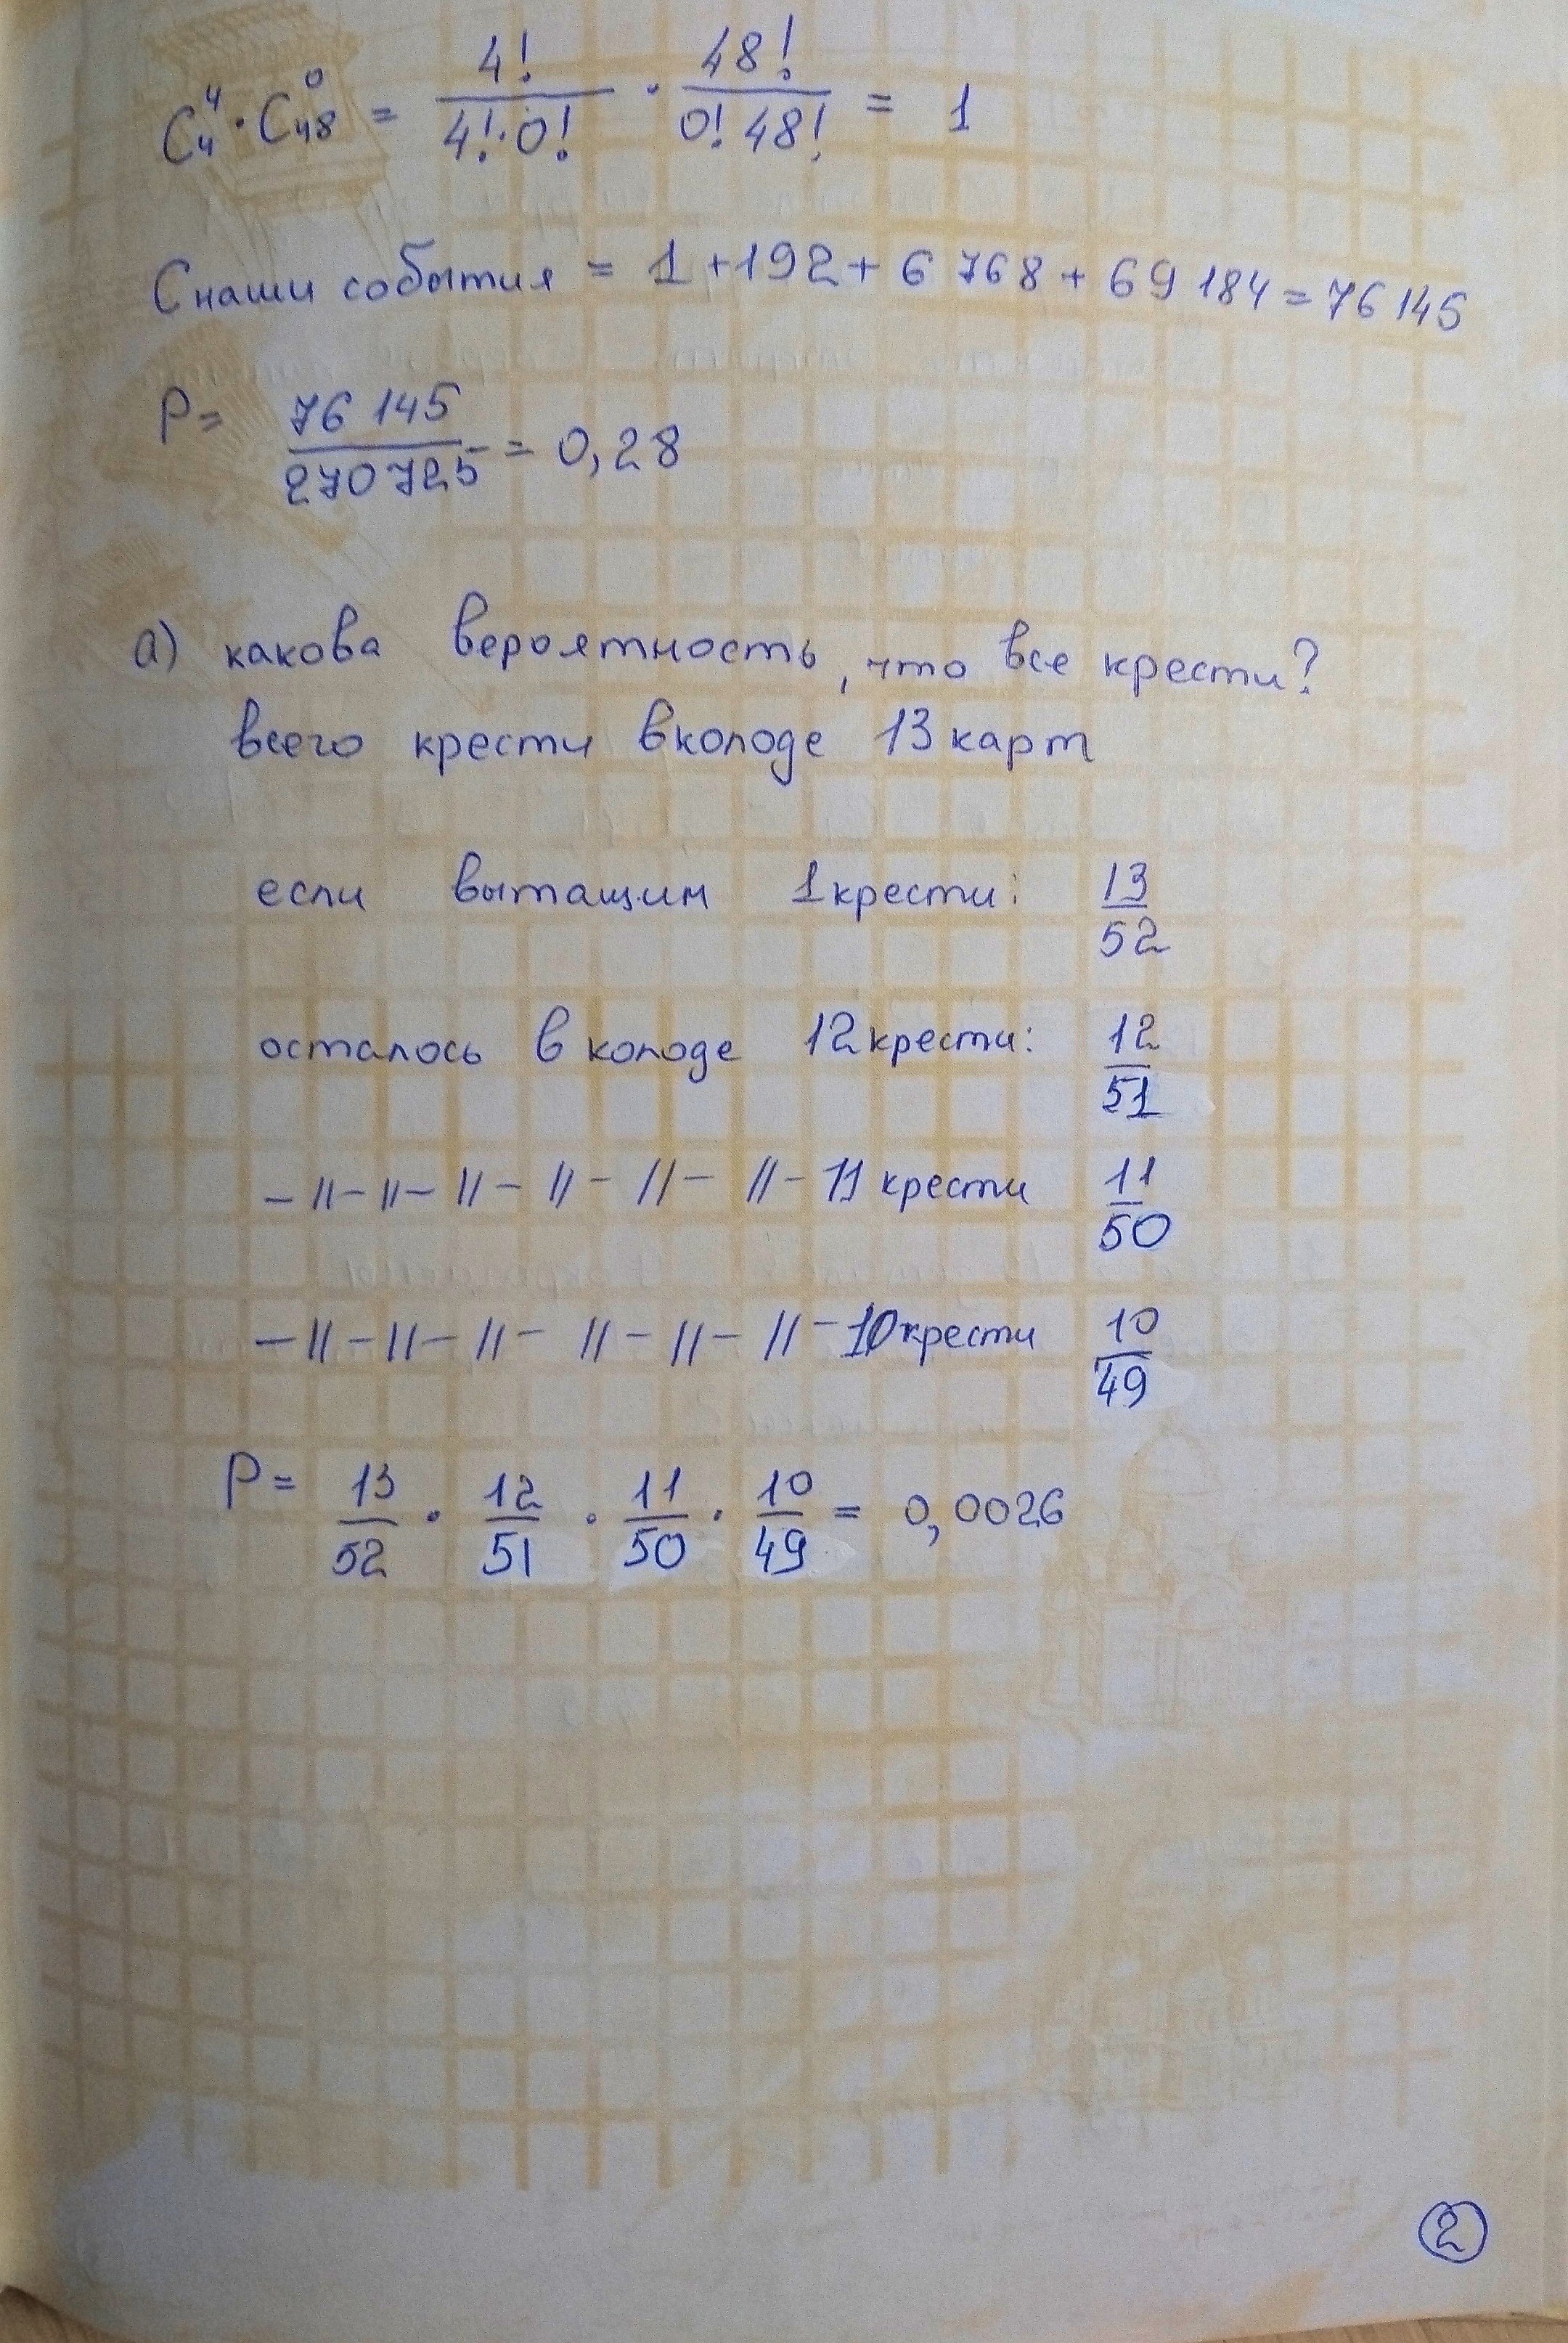 C₄⁴ · C₄₈⁰ = 4!/(4!·0!) · 48!/(0! 48!) = 1
C наши события = 1 + 192 + 6 768 + 69 184 = 76 145
P = 76 145/270 725 = 0,28
а) какова вероятность, что все крести?
всего крести в колоде 13 карт
если вытащим 1 крести: 13/52
осталось в колоде 12 крести: 12/51
–//–//–//–//–//–//–11 крести 11/50
–//–//–//–//–//–//–10 крести 10/49
P = 13/52 · 12/51 · 11/50 · 10/49 = 0,0026
2